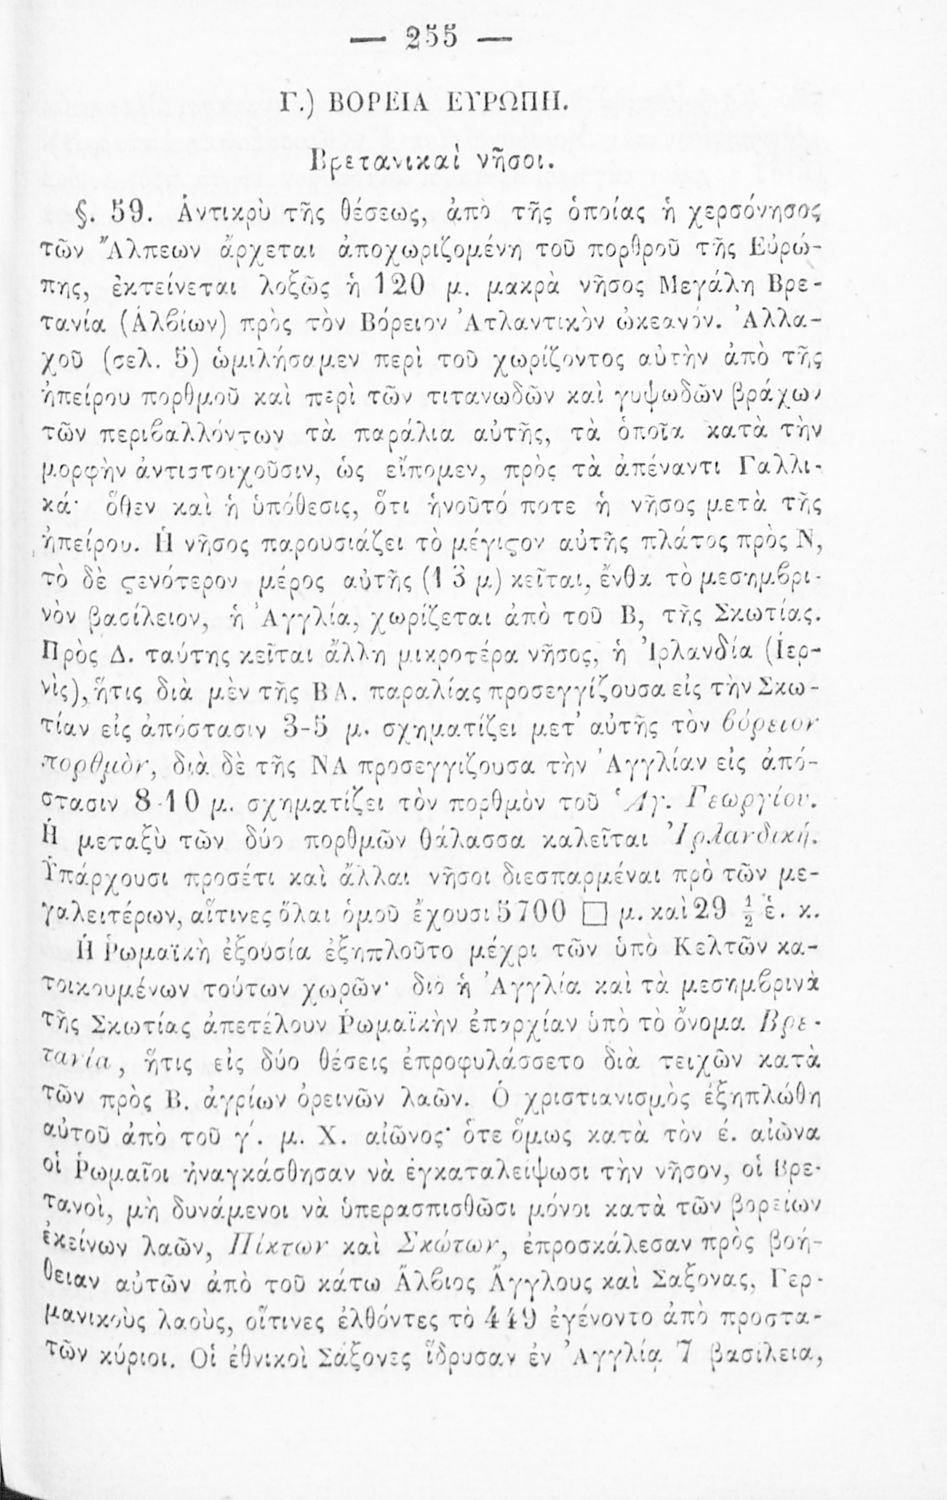 — 255 —
Γ.) ΒΟΡΕΙΑ ΕΥΡΩΠΗ.
Βρετανικαὶ νῆσοι.
§. 59. Ἀντικρὺ τῆς θέσεως, ἀπὸ τῆς ὁποίας ἡ χερσόνησος
τῶν Ἄλπεων ἄρχεται ἀποχωριζομένη τοῦ πορθροῦ τῆς Εὐρώ-
πης, ἐκτείνεται λοξῶς ἡ 120 μ. μακρὰ νῆσος Μεγάλη Βρε-
τανία (Ἀλβίων) πρὸς τὸν Βόρειον Ἀτλαντικὸν ὠκεανόν. Ἀλλα-
χοῦ (σελ. 5) ὡμιλήσαμεν περὶ τοῦ χωρίζοντος αὐτὴν ἀπὸ τῆς
ἠπείρου πορθμοῦ καὶ περὶ τῶν τιτανωδῶν καὶ γυψωδῶν βράχων
τῶν περιβαλλόντων τὰ παράλια αὐτῆς, τὰ ὁποῖα κατὰ τὴν
μορφὴν ἀντιστοιχοῦσιν, ὡς εἴπομεν, πρὸς τὰ ἀπέναντι Γαλλι-
κά· ὅθεν καὶ ἡ ὑπόθεσις, ὅτι ἡνοῦτό ποτε ἡ νῆσος μετὰ τῆς
ἠπείρου. Ἡ νῆσος παρουσιάζει τὸ μέγιϛον αὐτῆς πλάτος πρὸς Ν,
τὸ δὲ ϛενότερον μέρος αὐτῆς (13 μ) κεῖται, ἔνθα τὸ μεσημβρι-
νὸν βασίλειον, ἡ Ἀγγλία, χωρίζεται ἀπὸ τοῦ Β, τῆς Σκωτίας.
Πρὸς Δ. ταύτης κεῖται ἄλλη μικροτέρα νῆσος, ἡ Ἰρλανδία (Ἰερ-
νὶς), ἥτις διὰ μὲν τῆς ΒΑ. παραλίας προσεγγίζουσα εἰς τὴν Σκω-
τίαν εἰς ἀπόστασιν 3-5 μ. σχηματίζει μετ' αὐτῆς τὸν βόρειον
πορθμὸν, διὰ δὲ τῆς ΝΑ προσεγγιζουσα τὴν Ἀγγλίαν εἰς ἀπό-
στασιν 8-10 μ. σχηματίζει τὸν πορθμὸν τοῦ Ἁγ. Γεωργίου.
Ἡ μεταξὺ τῶν δύο πορθμῶν θάλασσα καλεῖται Ἰρλανδική.
Ὑπάρχουσι προσέτι καὶ ἄλλαι νῆσοι διεσπαρμέναι πρὸ τῶν με-
γαλειτέρων, αἵτινες ὅλαι ὁμοῦ ἔχουσι 5700 □ μ. καὶ 29 ½ ἑ. κ.
Ἡ Ῥωμαϊκὴ ἐξουσία ἐξηπλοῦτο μέχρι τῶν ὑπὸ Κελτῶν κα-
τοικουμένων τούτων χωρῶν· διὸ ἡ Ἀγγλία καὶ τὰ μεσημβρινὰ
τῆς Σκωτίας ἀπετέλουν Ῥωμαϊκὴν ἐπαρχίαν ὑπὸ τὸ ὄνομα Βρε-
τανία, ἥτις εἰς δύο θέσεις ἐπροφυλάσσετο διὰ τειχῶν κατὰ
τῶν πρὸς Β. ἀγρίων ὀρεινῶν λαῶν. Ὁ χριστιανισμὸς ἐξηπλώθη
αὐτοῦ ἀπὸ τοῦ γ'. μ. Χ. αἰῶνος· ὅτε ὅμως κατὰ τὸν έ. αἰῶνα
οἱ Ῥωμαῖοι ἠναγκάσθησαν νὰ ἐγκαταλείψωσι τὴν νῆσον, οἱ Βρε-
τανοὶ, μὴ δυνάμενοι νὰ ὑπερασπισθῶσι μόνοι κατὰ τῶν βορείων
ἐκείνων λαῶν, Πίκτων καὶ Σκώτων, ἐπροσκάλεσαν πρὸς βοή-
θειαν αὐτῶν ἀπὸ τοῦ κάτω Ἄλβιος Ἄγγλους καὶ Σαξονας, Γερ-
μανικοὺς λαοὺς, οἵτινες ἐλθόντες τὸ 449 ἐγένοντο ἀπὸ προστα-
τῶν κύριοι. Οἱ ἐθνικοὶ Σάξονες ἵδρυσαν ἐν Ἀγγλίᾳ 7 βασίλεια,